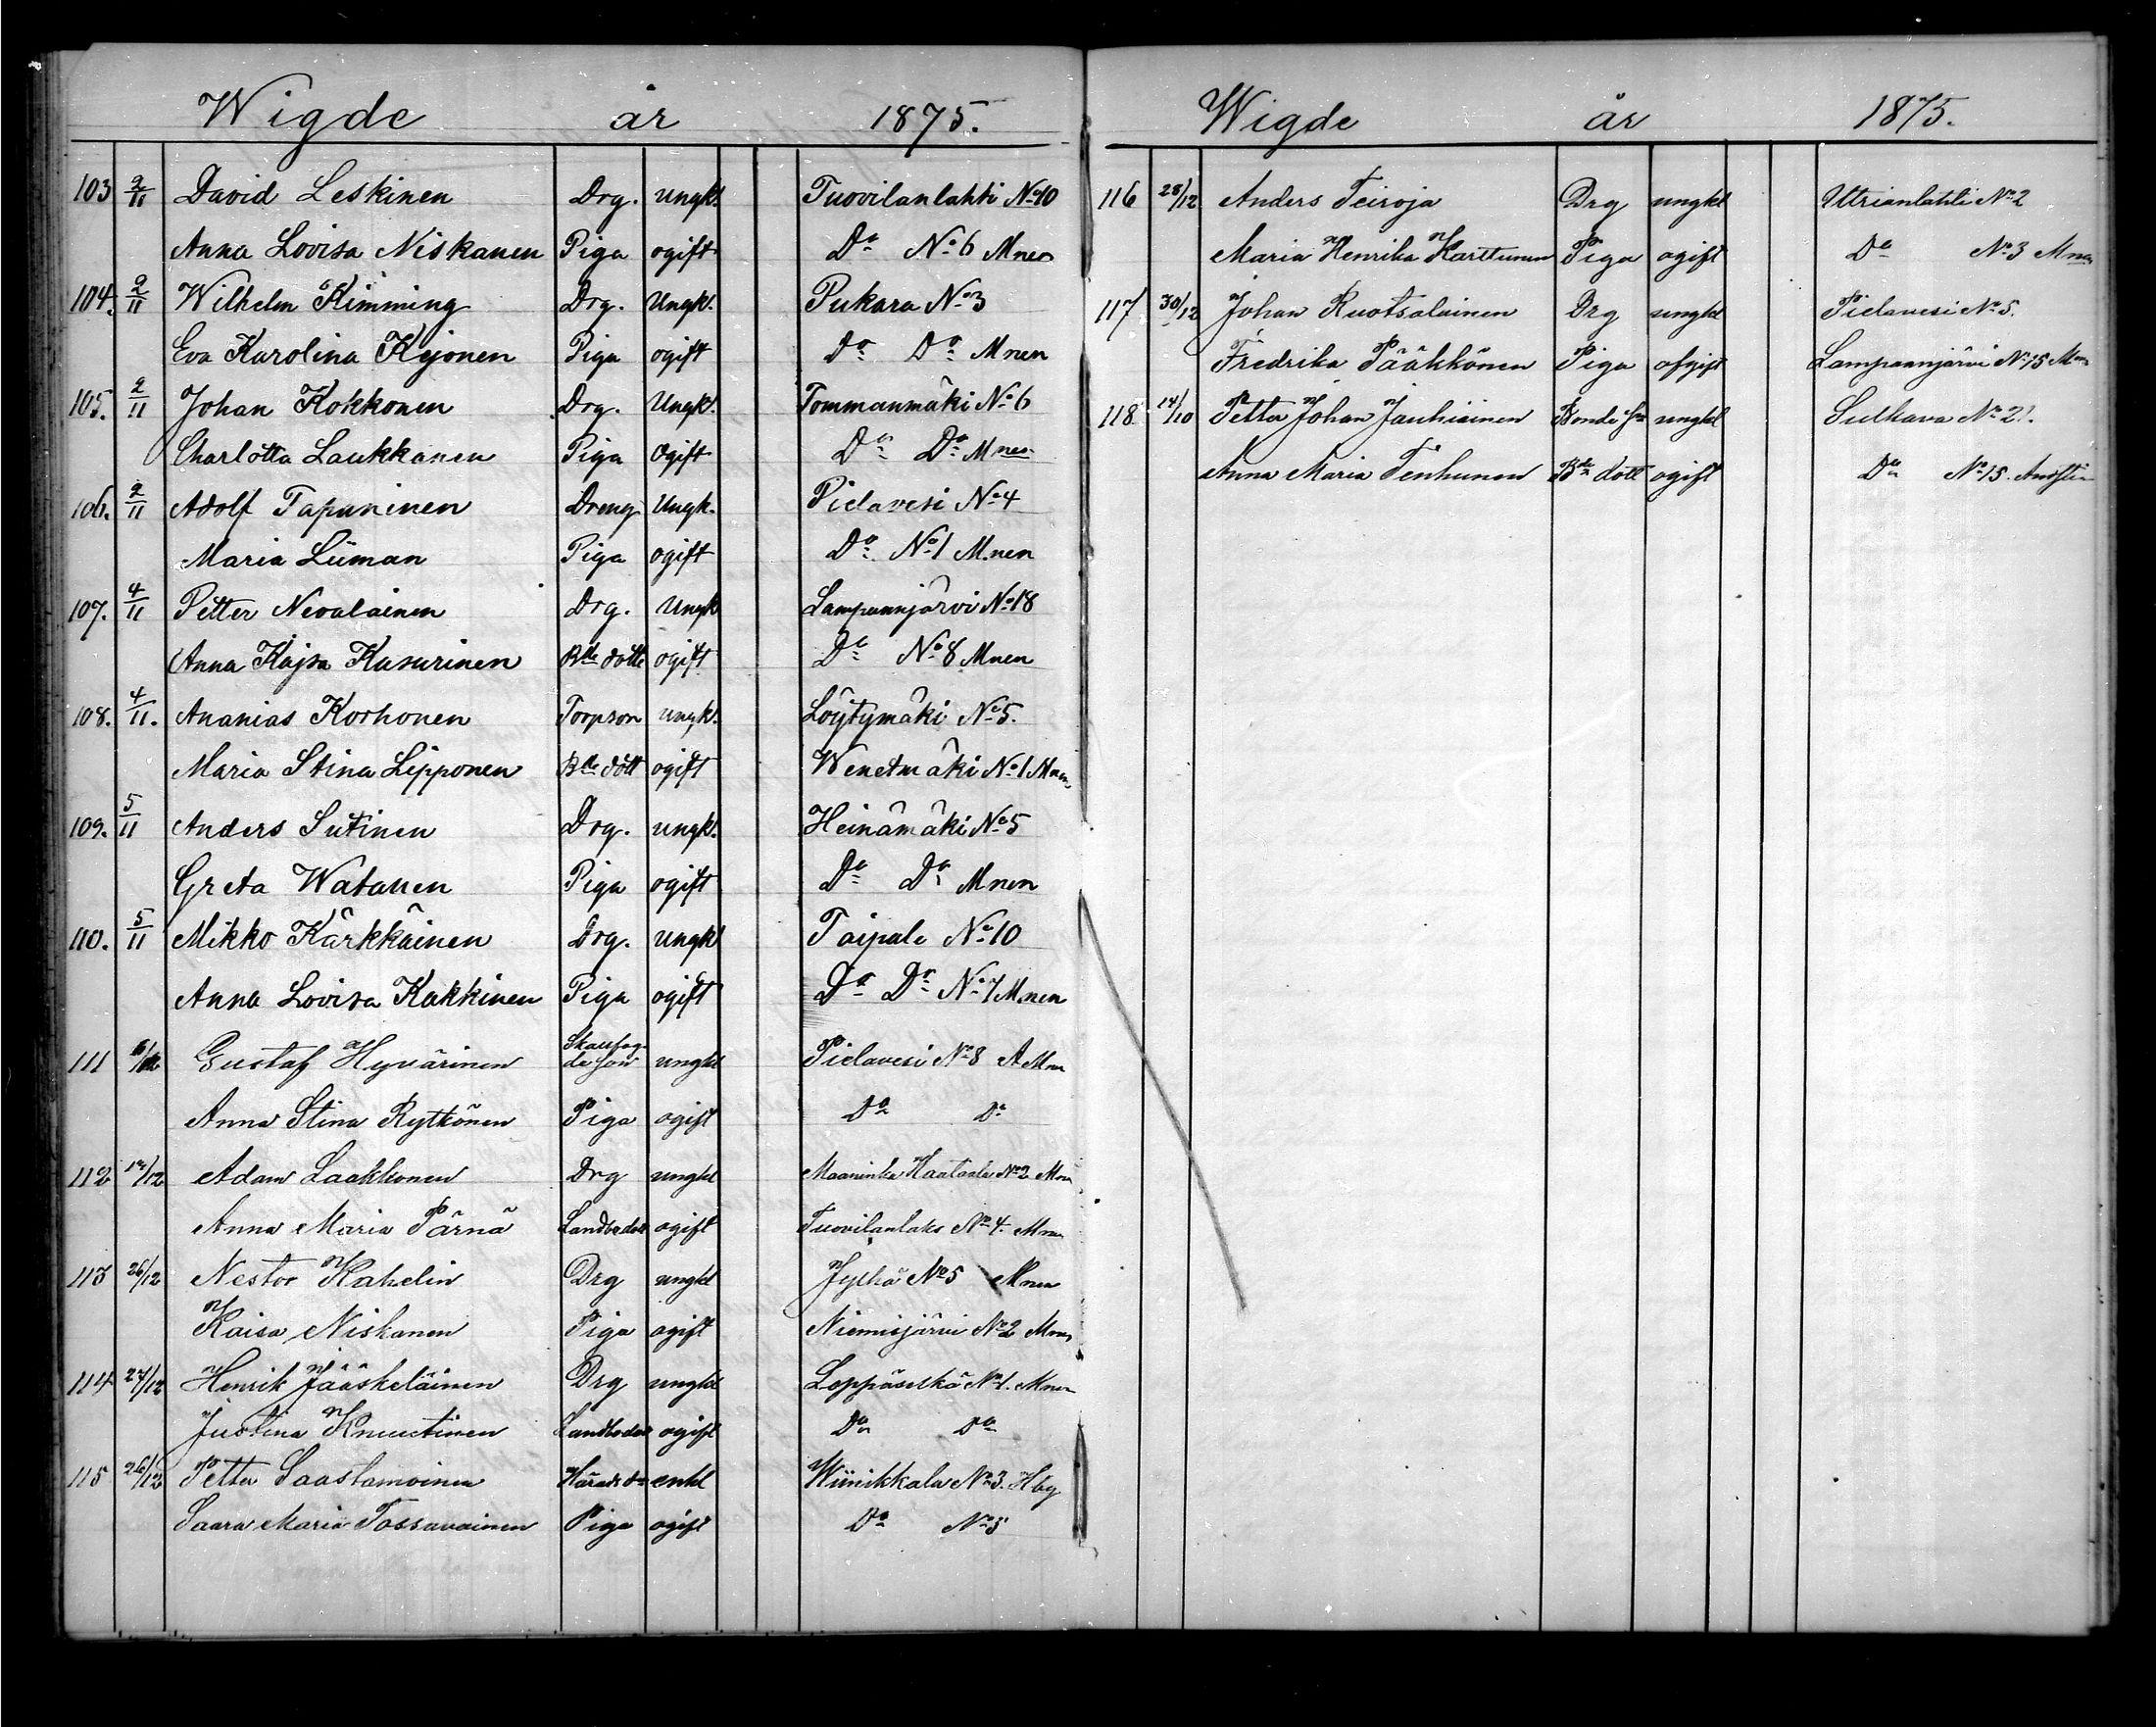 Wigde år 1875.
103 2/11 David Leskinen Drg. ungk. Tuovilanlahti No 10
Anna Lovisa Niskanen Piga ogift Do No 6 Mnen
104. 2/11 Wilhelm Kimming Drg. Ungk. Pukara No 3
Eva Karolina Kejonen Piga ogift Do Do Mnen
105. 2/11 Johan Kokkonen Drg. Ungk. Tommanmäki No 6
Charlotta Laukkanen Piga Ogift Do Do Mnen
106. 2/11 Adolf Tapaninen Dreng Ungk. Pielavesi No 4
Maria Liiman Piga ogift Do No 1 Mnen
107. 4/11 Petter Nevalainen Drg. Ungk Lampaanjärvi No 18
Anna Kajsa Kasurinen Bde dotte ogift Do No 8 Mnen
108. 4/11. Ananias Korhonen Torpson ungk. Löytymäki No 5.
Maria Stina Lipponen Bde dott ogift Wenetmäki No 1 Mnen
109. 5/11 Anders Sutinen Drg. ungk. Heinämäki No 5
Greta Watanen Piga ogift Do Do Mnen
110. 5/11 Mikko Kärkkäinen Drg. ungkl Taipale No 10
Anna Lovisa Kakkinen Piga ogift Do Do No 7 Mnen
111 6/12 Gustaf Hyvärinen ungkl Pielavesi No 8 A Mnen
Anna Stina Rytkönen Piga ogift Do Do
112 /12 Adam Laakkonen Drg ungkl Maaninka Haatala No 2 Mnen
Anna Maria Pärnä Landbodott ogift Tuovilanlaks No 4. Mnen
113 26/12 Nestor Kahelin Drg ungkl Jylhä No 5 Mnen
Kaisa Niskanen Piga ogift Niemisjärvi No 2 Mnen
114 27/12 Henrik Jääskeläinen Drg ungkl Leppäselkä No 1. Mnen
Justina Knuutinen Landbodott ogift Do Do
115 26/12 Petter Saastamoinen enkl Wiinikkala No 3. Hby
Saara Maria Tossavainen Piga ogift Do No 5
Wigde år 1875.
116 28/12 Anders Teiroja Drg ungkl Utrianlahti No 2
Maria Henrika Karttunen Piga ogift Do No 3 Mnen
117 30/12 Johan Ruotsalainen Drg ungkl Pielavesi No 5.
Fredrika Pääkkönen Piga ofgift Lampaanjärvi No 15 Mnen
118 14/10 Petter Johan Jauhiainen Bonde son ungkl Sulkava No 21.
Anna Maria Tenhunen Bde dott ogift Do No 15.